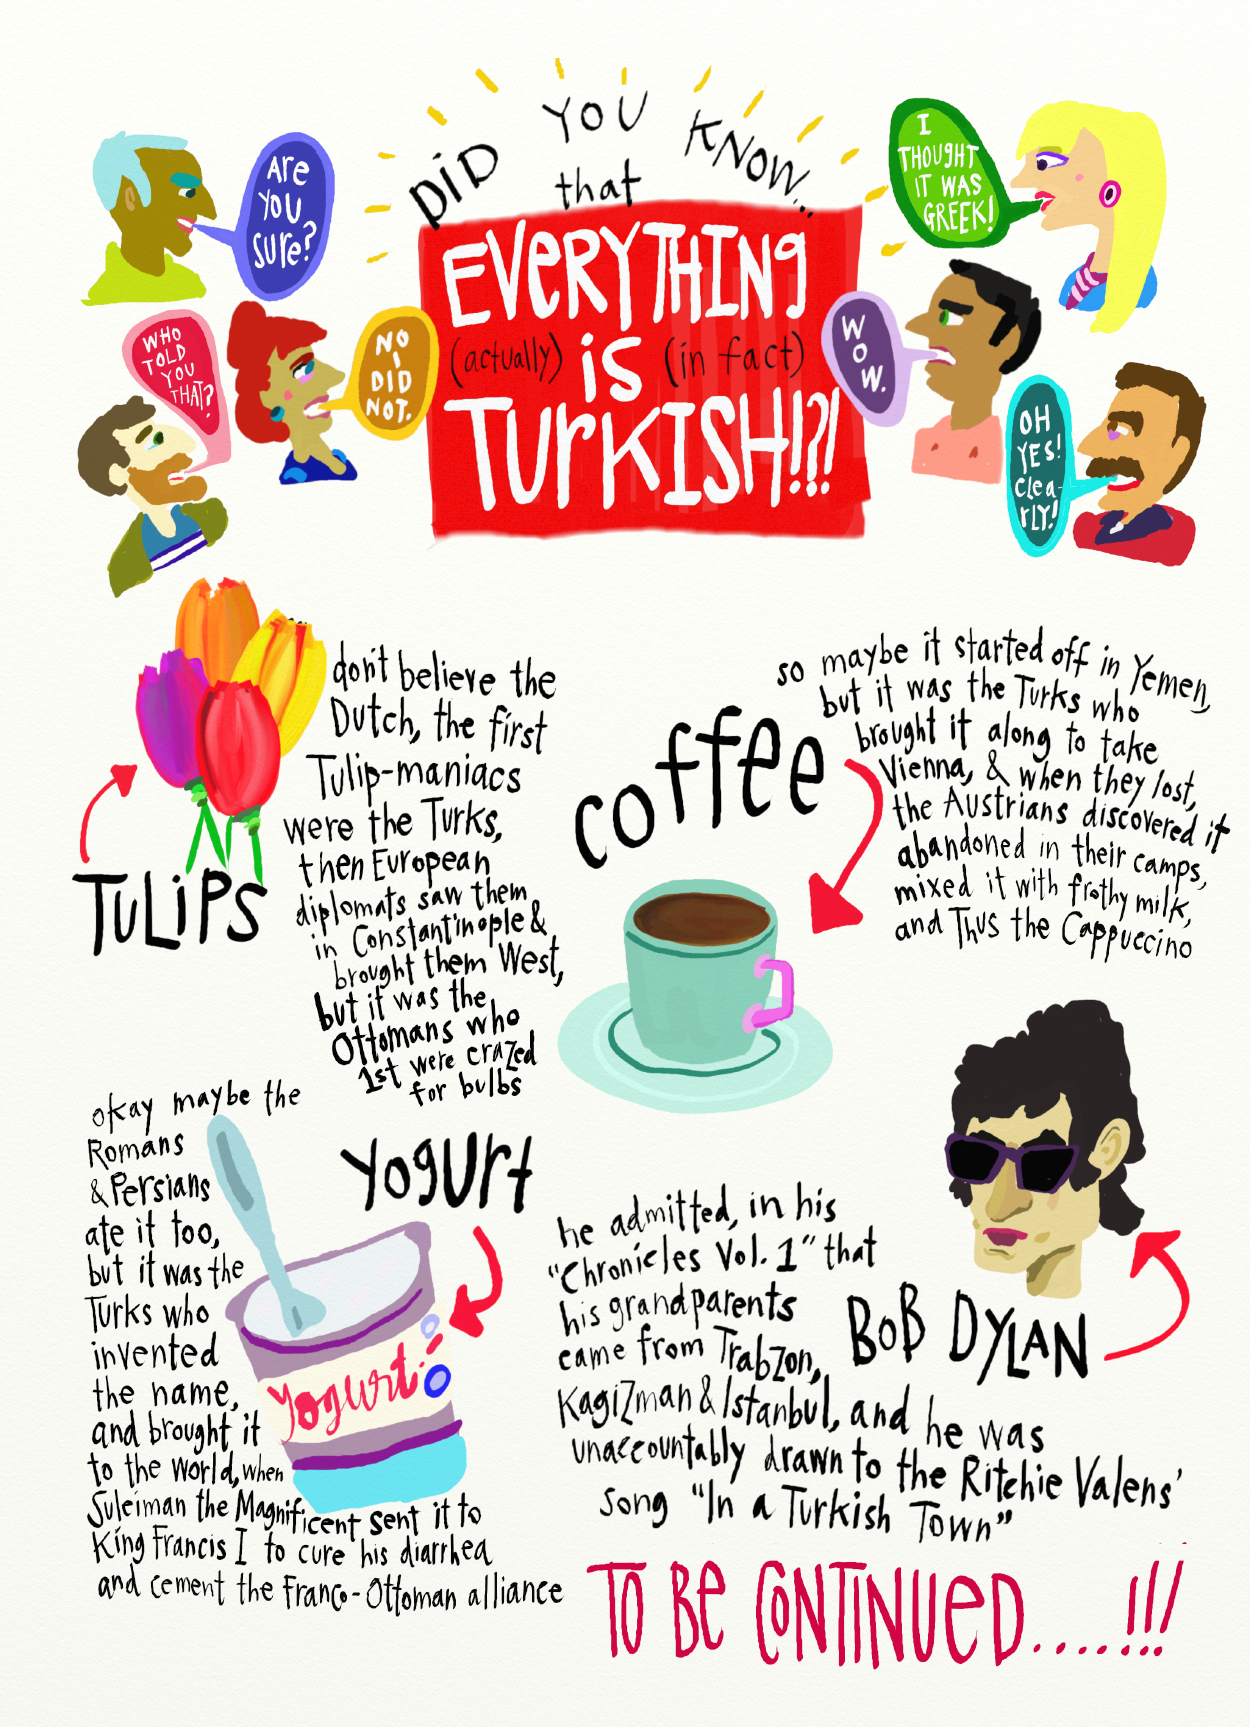 DID YOU KNOW...
that
EVERYTHING
(actually) is (in fact)
TURKISH!?!
Are
You
Sure?
WHO
TOLD
YOU
THAT?
NO
I
DID
NOT.
I
THOUGHT
IT WAS
GREEK!
WOW.
OH
YES!
Clea-
rLY!
TULIPS
don't believe the
Dutch, the first
Tulip-maniacs
were the Turks,
then European
diplomats saw them
in Constantinople &
brought them West,
but it was the
Ottomans who
1st were crazed
for bulbs
coffee
so maybe it started off in Yemen,
but it was the Turks who
brought it along to take
Vienna, & when they lost,
the Austrians discovered it
abandoned in their camps,
mixed it with frothy milk,
and Thus the Cappuccino
Yogurt
okay maybe the
Romans
& Persians
ate it too,
but it was the
Turks who
invented
the name,
and brought it
to the world, when
Suleiman the Magnificent sent it to
King Francis I to cure his diarrhea
and cement the Franco-Ottoman alliance
Yogurt
BOB DYLAN
he admitted, in his
"Chronicles Vol. 1" that
his grandparents
came from Trabzon,
Kagizman & Istanbul, and he was
unaccountably drawn to the Ritchie Valens'
song "In a Turkish Town"
TO BE CONTINUED....!!!